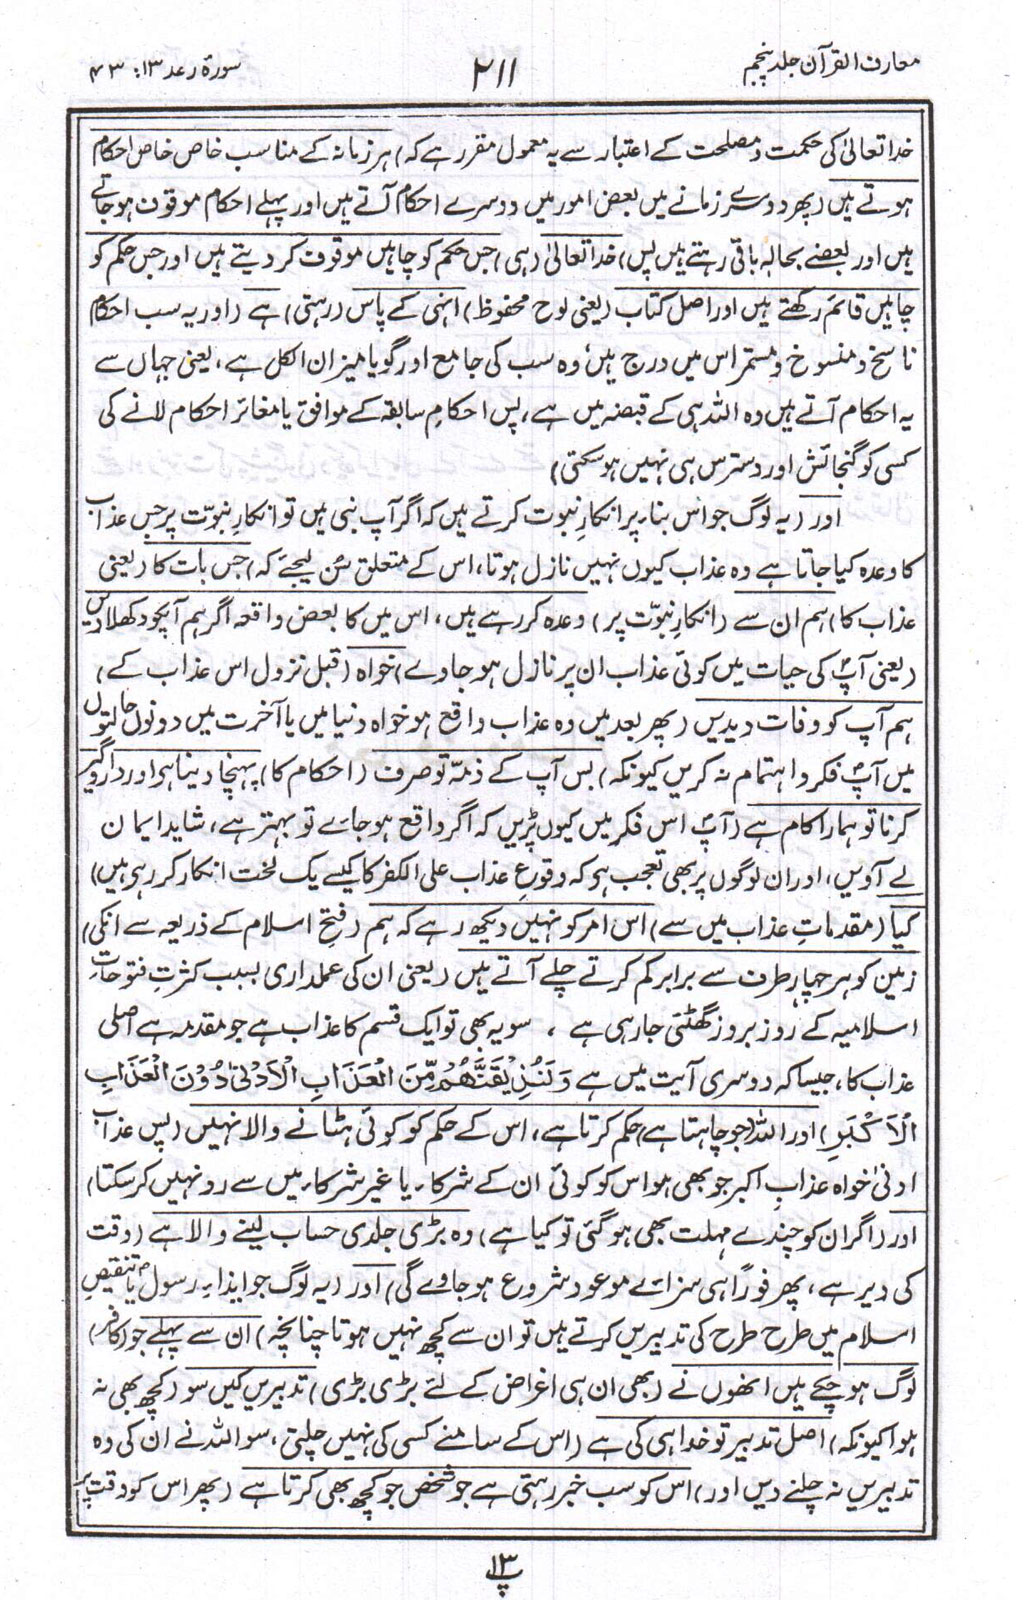 معارف القرآن جلد پنجم
۲۱۱
سورۂ رعد ۱۳: ۴۳
خدا تعالیٰ کی حکمت و مصلحت کے اعتبار سے یہ معمول مقرر ہے کہ) ہر زمانہ کے مناسب خاص خاص احکام
ہوتے ہیں (پھر دوسرے زمانے میں بعض امور میں دوسرے احکام آتے ہیں اور پہلے احکام موقوف ہو جاتے
ہیں اور بعضے بحالہ باقی رہتے ہیں پس) خدا تعالیٰ (ہی) جس حکم کو چاہیں موقوف کر دیتے ہیں اور جس حکم کو
چاہیں قائم رکھتے ہیں اور اصل کتاب (یعنی لوح محفوظ) انہی کے پاس (رہتی) ہے (اور یہ سب احکام
ناسخ و منسوخ و مستمر اس میں درج ہیں وہ سب کی جامع اور گویا میزان الکل ہے، یعنی جہاں سے
یہ احکام آتے ہیں وہ اللہ ہی کے قبضہ میں ہے، پس احکامِ سابقہ کے موافق یا مغائر احکام لانے کی
کسی کو گنجائش اور دسترس ہی نہیں ہو سکتی)
اور (یہ لوگ جو اس بناء پر انکارِ نبوت کرتے ہیں کہ اگر آپ نبی ہیں تو انکارِ نبوّت پر جس عذاب
کا وعدہ کیا جاتا ہے وہ عذاب کیوں نہیں نازل ہوتا، اس کے متعلق سُن لیجئے کہ) جس بات کا (یعنی
عذاب کا) ہم ان سے (انکارِ نبوّت پر) وعدہ کر رہے ہیں، اس میں کا بعض واقعہ اگر ہم آپکو دکھلا دیں
(یعنی آپؐ کی حیات میں کوئی عذاب ان پر نازل ہو جاوے) خواہ (قبل نزول اس عذاب کے)
ہم آپ کو وفات دیدیں (پھر بعد میں وہ عذاب واقع ہو خواہ دنیا میں یا آخرت میں دونوں حالتوں
میں آپؐ فکر و اہتمام نہ کریں کیونکہ) بس آپ کے ذمّہ تو صرف (احکام کا) پہنچا دینا ہو اور دار و گیر
کرنا تو ہمارا کام ہے (آپؐ اس فکر میں کیوں پڑیں کہ اگر واقع ہو جائے تو بہتر ہے، شاید ایمان
لے آویں، اور ان لوگوں پر بھی تعجب ہو کہ وقوعِ عذاب علی الکفر کا کیسے یک لخت انکار کر رہی ہیں)
کیا (مقدماتِ عذاب میں سے) اس امر کو نہیں دیکھ رہے کہ ہم (فتحِ اسلام کے ذریعہ سے انکی)
زمین کو ہر چہار طرف سے برابر کم کرتے چلے آتے ہیں (یعنی ان کی عملداری بسبب کثرتِ فتوحاتِ
اسلامیہ کے روز بروز گھٹتی جا رہی ہے ، سو یہ بھی تو ایک قسم کا عذاب ہے جو مقدمہ ہے اصلی
عذاب کا، جیسا کہ دوسری آیت میں ہے وَلَنُذِيْقَنَّهُمْ مِّنَ الْعَذَابِ الْاَدْنٰى دُوْنَ الْعَذَابِ
الْاَكْبَرِ) اور اللہ (جو چاہتا ہے) حکم کرتا ہے، اس کے حکم کو کوئی ہٹانے والا نہیں (پس عذاب
ادنیٰ خواہ عذابِ اکبر جو بھی ہو اس کو کوئی ان کے شرکاء یا غیر شرکاء میں سے رد نہیں کر سکتا)
اور (اگر ان کو چندے مہلت بھی ہو گئی تو کیا ہے) وہ بڑی جلدی حساب لینے والا ہے (وقت
کی دیر ہے، پھر فوراً ہی سزائے موعود شروع ہو جاوے گی) اور (یہ لوگ جو ایذاءِ رسولؐ یا تنقیصِ
اسلام میں طرح طرح کی تدبیریں کرتے ہیں تو ان سے کچھ نہیں ہوتا چنانچہ) ان سے پہلے جو (کافر)
لوگ ہو چکے ہیں انھوں نے (بھی ان ہی اغراض کے لئے بڑی بڑی) تدبیریں کیں سو (کچھ بھی نہ
ہوا کیونکہ) اصل تدبیر تو خدا ہی کی ہے (اس کے سامنے کسی کی نہیں چلتی، سو اللہ نے ان کی وہ
تدبیریں نہ چلنے دیں اور) اس کو سب خبر رہتی ہے جو شخص جو کچھ بھی کرتا ہے (پھر اس کو وقت پر
پ۱۳